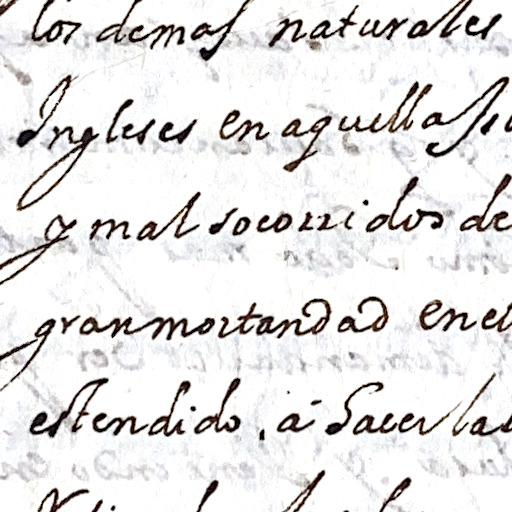 los demas naturales
Ingleses en aquellas
y mal socorridos de
gran mortandad en el
estendido, a hacer las